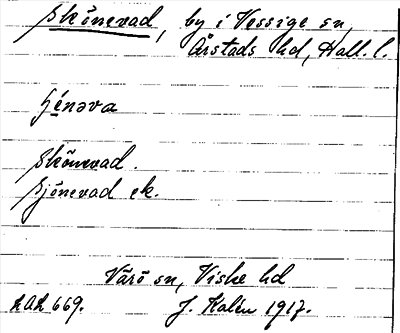 Skönevad, by i Vessige sn,
Årstads hd, Hall. l.
Skönevad.
Sjönevad ek.
Värö sn, Viske hd
J. Kalén 1917.